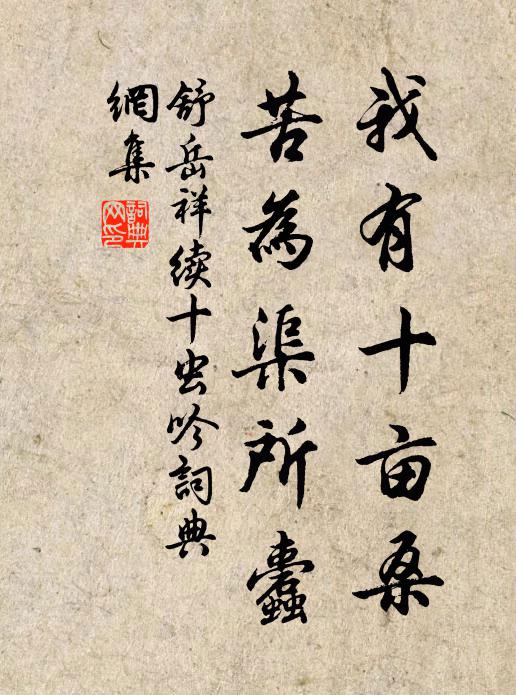 我有十亩桑
苦為渠所蠹
舒岳祥續十虫吟詞典
網集
詞典
网印